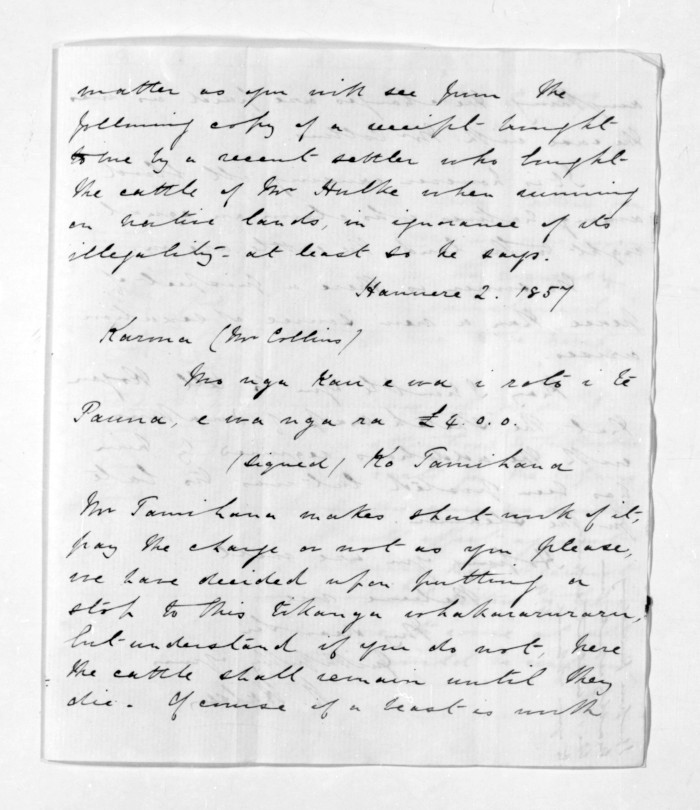 matter as you will see from the
following copy of a receipt brought
to me by a recent settler who bought
the cattle of Mr Hulke when running
on native lands, in ignorance of its
illegality - at least so he says.
Hanuere 2. 1857
Karina (Mr Collins)
Mo nga Kau e wa i roto i te
Pauna, e wa nga ra £4.0.0.
(signed) Ko Tamihana
Mr Tamihana makes short work of it,
pay the charge or not as you please,
we have decided upon putting a
stop to this tikanga whakararuraru,
but understand if you do not, here
the cattle shall remain until they
die. Of course if a beast is worth